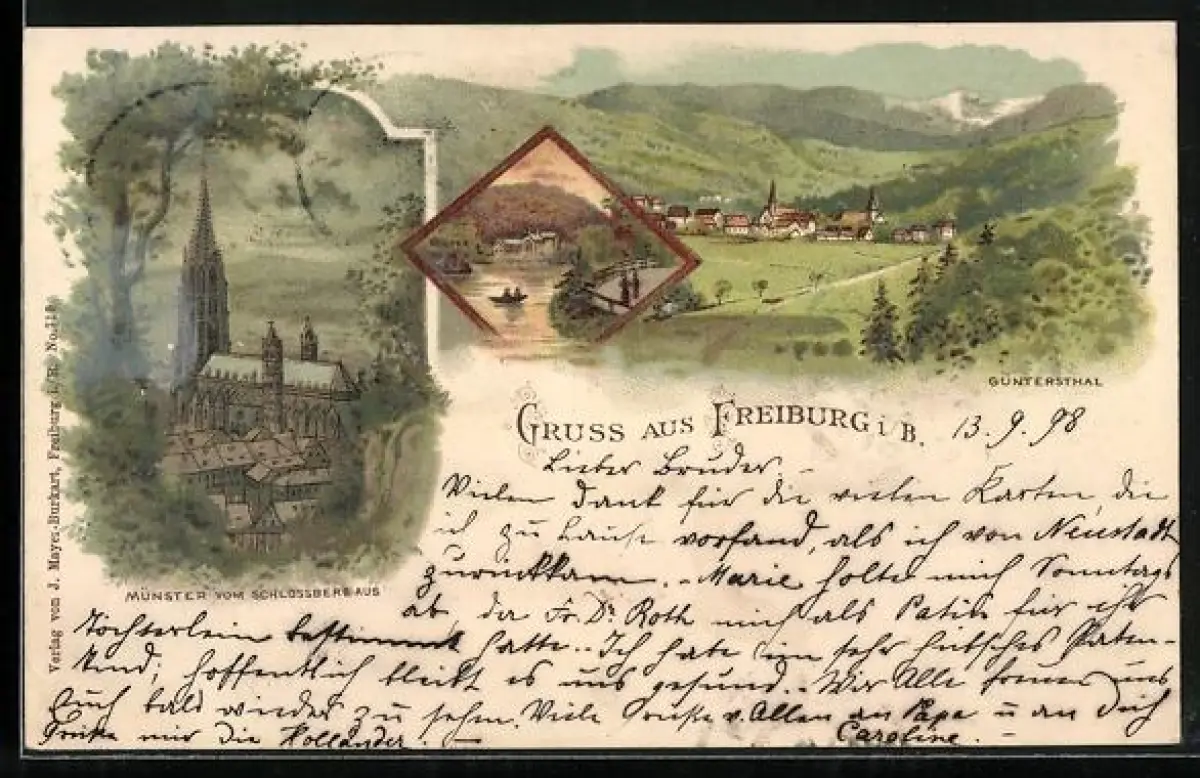 GÜNTERSTHAL
GRUSS AUS FREIBURG i B. 13.9.98
Lieber Bruder, -
Vielen Dank für die vielen Karten, die
ich zu Hause vorfand, als ich von Neustadt
zurückkam. - Marie holte mich Sonntags
ab, da Fr. Dr. Roth mich als Patin für ihr
Töchterlein bestimmt hatte.. Ich habe ein sehr hübsches Paten-
kind; hoffentlich bleibt es uns gesund.. Wir Alle freuen uns
Euch bald wieder zu sehn. Viele Grüße v. Allen an Papa u an Dich
Grüße mir die Holländer. - Caroline.
MÜNSTER VOM SCHLOSSBERG AUS
Verlag vom J. Mayer-Burkart, Freiburg i/B. No.